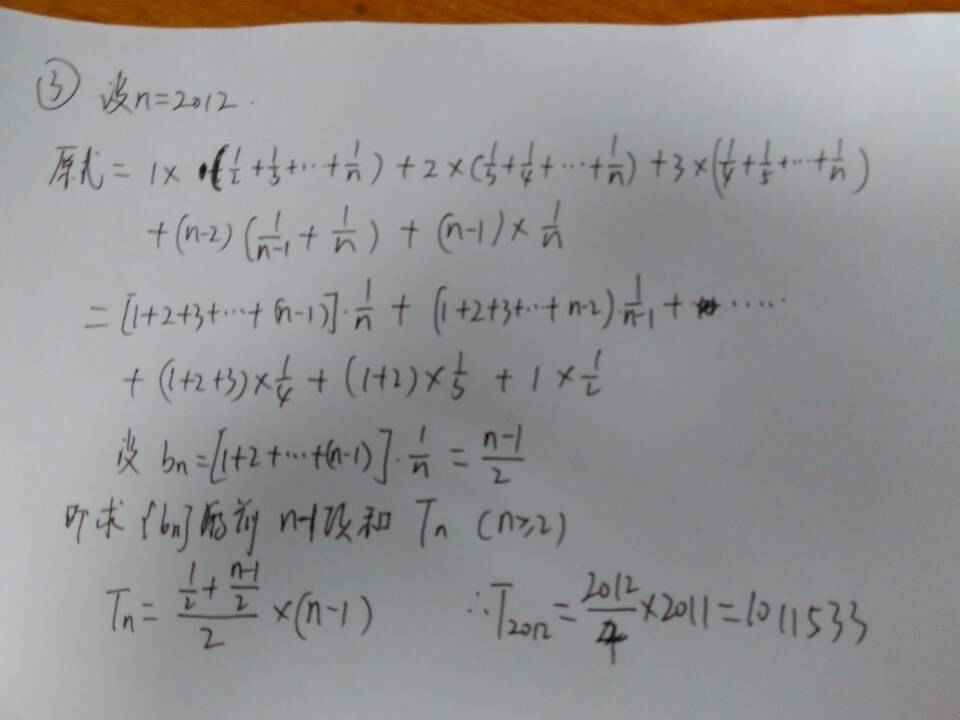 ③ 设n=2012.
原式= 1×(1/2+1/3+…+1/n)+2×(1/3+1/4+…+1/n)+3×(1/4+1/5+…+1/n)
+(n-2)(1/(n-1)+1/n)+(n-1)×1/n
=[1+2+3+…+(n-1)]·1/n+(1+2+3+…+n-2)·1/(n-1)+……
+(1+2+3)×1/4+(1+2)×1/3+1×1/2
设 bn=[1+2+…+(n-1)]·1/n=(n-1)/2
即求{bn}的前n-1项和Tn(n≥2)
Tn=(1/2+(n-1)/2)/2×(n-1) ∴T2012=2012/4×2011=1011533